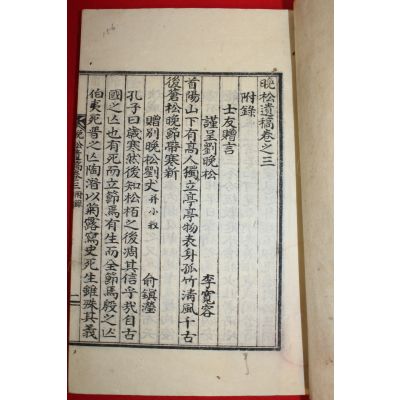 晚松遺稿卷之三
附錄
士友贈言
謹呈劉晚松 李寬容
首陽山下有高人獨立亭亭物表身孤竹淸風千古
後蒼松晚節帶寒新
贈別晚松劉丈 幷小叙 兪鎭瀅
孔子曰歲寒然後知松栢之後凋其信乎哉自古
國之亡也有死而立節焉有生而全節焉殷之亡
伯夷死晋之亡陶潜以菊露寫史死生雖殊其義
晚松遺稿卷三附錄 一